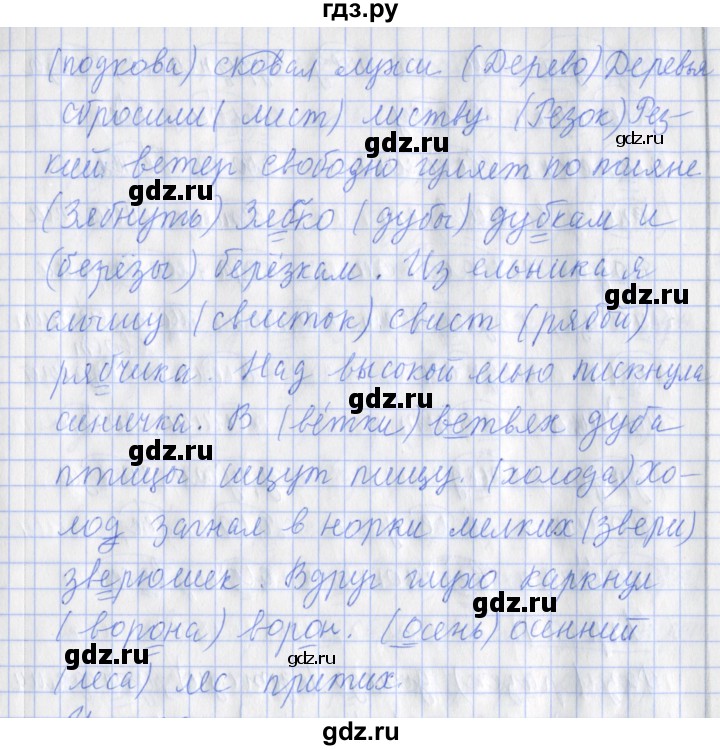 гдз.ру
(подкова) сковал лужи (Дерево) Деревья
сбросили (лист) листву. (Резок) Рез-
gdz.ru
gdz.ru
кий ветер свободно гуляет по поляне.
gdz.ru
(Зябнуть) Зябко (дубы) дубкам и
(берёзы) берёзкам. Из ельника я
gdz.ru
слышу (свисток) свист (рябой)
рябчика. Над высокой елью пискнула
gdz.ru
синичка. В (ве́тки) ветвях дуба
gdz.ru
птицы ищут пищу. (холода) Хо-
лод загнал в норки мелких (звери)
зверюшек. Вдруг глухо каркнул
gdz.ru
(ворона) ворон. (осень) осенний
gdz.ru
gdz.ru
(леса) лес притих.
gdz.ru